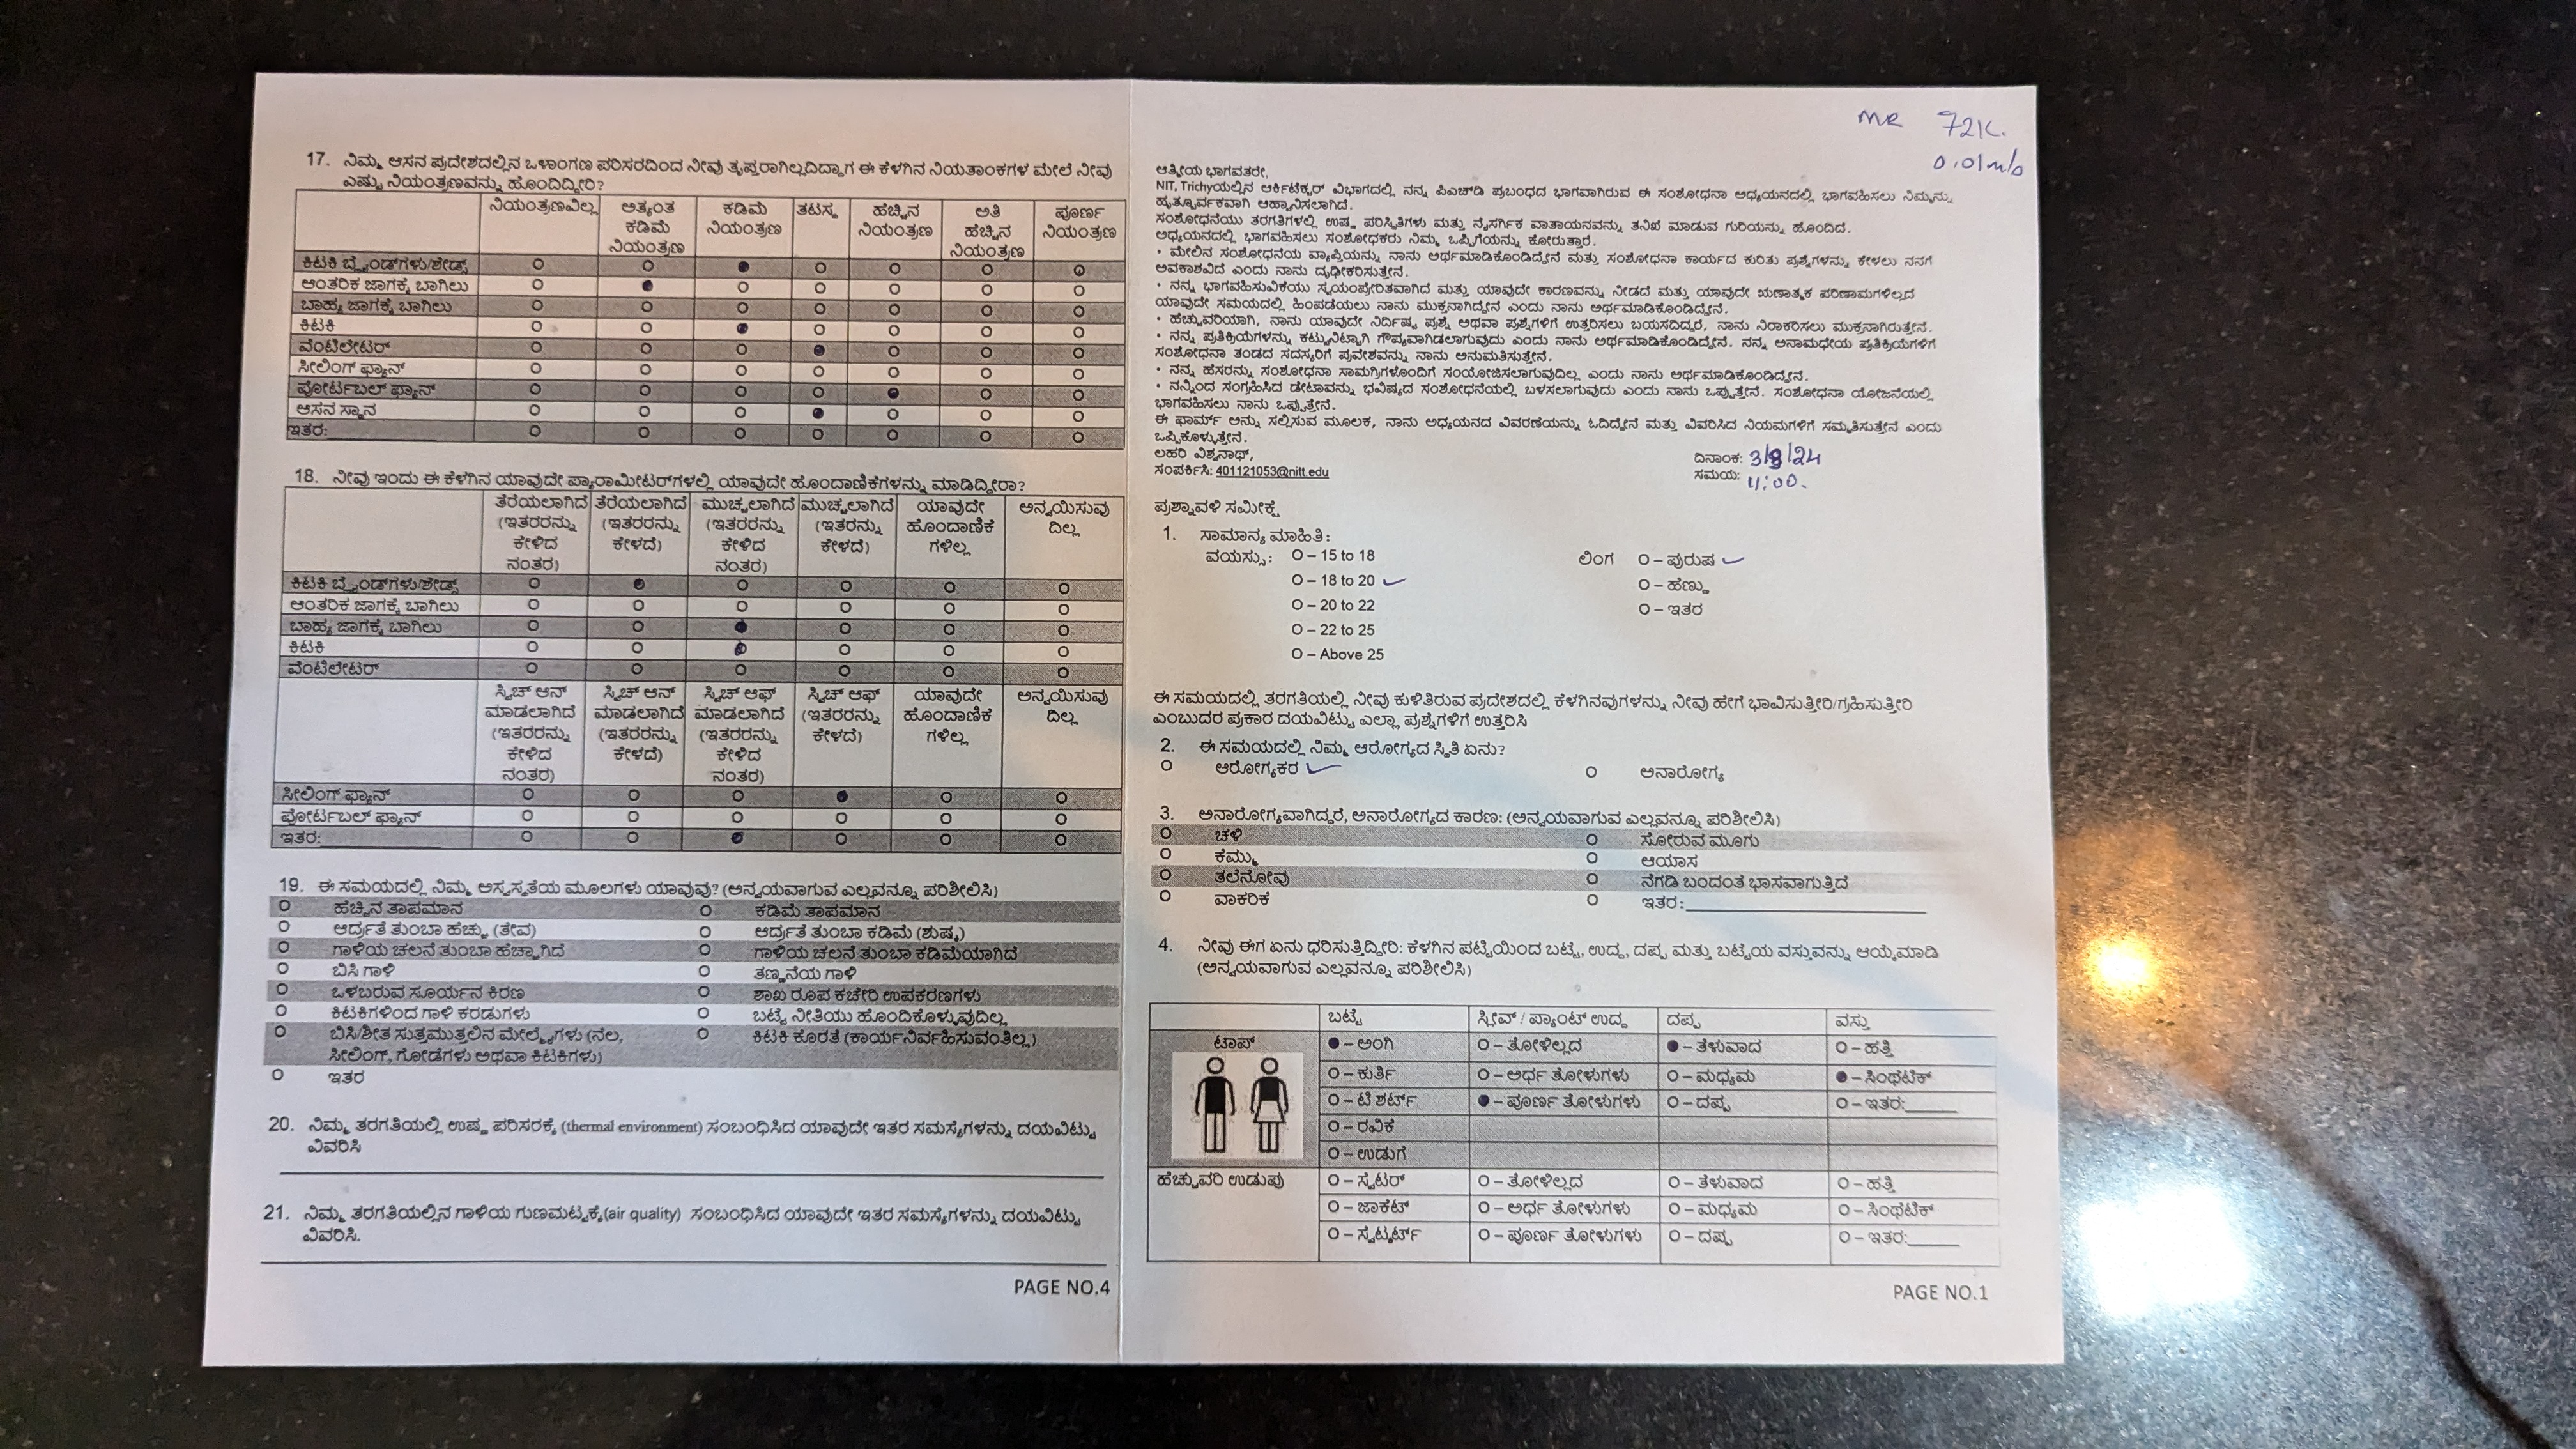 17. ನಿಮ್ಮ ಆಸನ ಪ್ರದೇಶದಲ್ಲಿನ ಒಳಾಂಗಣ ಪರಿಸರದಿಂದ ನೀವು ತೃಪ್ತರಾಗಿಲ್ಲದಿದ್ದಾಗ ಈ ಕೆಳಗಿನ ನಿಯತಾಂಕಗಳ ಮೇಲೆ ನೀವು
ಎಷ್ಟು ನಿಯಂತ್ರಣವನ್ನು ಹೊಂದಿದ್ದೀರಿ?
ನಿಯಂತ್ರಣವಿಲ್ಲ ಅತ್ಯಂತ ಕಡಿಮೆ ನಿಯಂತ್ರಣ ಕಡಿಮೆ ನಿಯಂತ್ರಣ ತಟಸ್ಥ ಹೆಚ್ಚಿನ ನಿಯಂತ್ರಣ ಅತಿ ಹೆಚ್ಚಿನ ನಿಯಂತ್ರಣ ಪೂರ್ಣ ನಿಯಂತ್ರಣ
ಕಿಟಕಿ ಬ್ಲೈಂಡ್‌ಗಳು/ಶೇಡ್ಸ್
ಆಂತರಿಕ ಜಾಗಕ್ಕೆ ಬಾಗಿಲು
ಬಾಹ್ಯ ಜಾಗಕ್ಕೆ ಬಾಗಿಲು
ಕಿಟಕಿ
ವೆಂಟಿಲೇಟರ್
ಸೀಲಿಂಗ್ ಫ್ಯಾನ್
ಪೋರ್ಟಬಲ್ ಫ್ಯಾನ್
ಆಸನ ಸ್ಥಾನ
ಇತರ:
18. ನೀವು ಇಂದು ಈ ಕೆಳಗಿನ ಯಾವುದೇ ಪ್ಯಾರಾಮೀಟರ್‌ಗಳಲ್ಲಿ ಯಾವುದೇ ಹೊಂದಾಣಿಕೆಗಳನ್ನು ಮಾಡಿದ್ದೀರಾ?
ತೆರೆಯಲಾಗಿದೆ (ಇತರರನ್ನು ಕೇಳಿದ ನಂತರ) ತೆರೆಯಲಾಗಿದೆ (ಇತರರನ್ನು ಕೇಳದೆ) ಮುಚ್ಚಲಾಗಿದೆ (ಇತರರನ್ನು ಕೇಳಿದ ನಂತರ) ಮುಚ್ಚಲಾಗಿದೆ (ಇತರರನ್ನು ಕೇಳದೆ) ಯಾವುದೇ ಹೊಂದಾಣಿಕೆ ಗಳಿಲ್ಲ ಅನ್ವಯಿಸುವು ದಿಲ್ಲ
ಕಿಟಕಿ ಬ್ಲೈಂಡ್‌ಗಳು/ಶೇಡ್ಸ್
ಆಂತರಿಕ ಜಾಗಕ್ಕೆ ಬಾಗಿಲು
ಬಾಹ್ಯ ಜಾಗಕ್ಕೆ ಬಾಗಿಲು
ಕಿಟಕಿ
ವೆಂಟಿಲೇಟರ್
ಸ್ವಿಚ್ ಆನ್ ಮಾಡಲಾಗಿದೆ (ಇತರರನ್ನು ಕೇಳಿದ ನಂತರ) ಸ್ವಿಚ್ ಆನ್ ಮಾಡಲಾಗಿದೆ (ಇತರರನ್ನು ಕೇಳದೆ) ಸ್ವಿಚ್ ಆಫ್ ಮಾಡಲಾಗಿದೆ (ಇತರರನ್ನು ಕೇಳಿದ ನಂತರ) ಸ್ವಿಚ್ ಆಫ್ (ಇತರರನ್ನು ಕೇಳದೆ) ಯಾವುದೇ ಹೊಂದಾಣಿಕೆ ಗಳಿಲ್ಲ ಅನ್ವಯಿಸುವು ದಿಲ್ಲ
ಸೀಲಿಂಗ್ ಫ್ಯಾನ್
ಪೋರ್ಟಬಲ್ ಫ್ಯಾನ್
ಇತರ:
19. ಈ ಸಮಯದಲ್ಲಿ ನಿಮ್ಮ ಅಸ್ವಸ್ಥತೆಯ ಮೂಲಗಳು ಯಾವುವು? (ಅನ್ವಯವಾಗುವ ಎಲ್ಲವನ್ನೂ ಪರಿಶೀಲಿಸಿ)
ಹೆಚ್ಚಿನ ತಾಪಮಾನ ಕಡಿಮೆ ತಾಪಮಾನ
ಆರ್ದ್ರತೆ ತುಂಬಾ ಹೆಚ್ಚು (ತೇವ) ಆರ್ದ್ರತೆ ತುಂಬಾ ಕಡಿಮೆ (ಶುಷ್ಕ)
ಗಾಳಿಯ ಚಲನೆ ತುಂಬಾ ಹೆಚ್ಚಾಗಿದೆ ಗಾಳಿಯ ಚಲನೆ ತುಂಬಾ ಕಡಿಮೆಯಾಗಿದೆ
ಬಿಸಿ ಗಾಳಿ ತಣ್ಣನೆಯ ಗಾಳಿ
ಒಳಬರುವ ಸೂರ್ಯನ ಕಿರಣ ಶಾಖ ರೂಪ ಕಚೇರಿ ಉಪಕರಣಗಳು
ಕಿಟಕಿಗಳಿಂದ ಗಾಳಿ ಕರಡುಗಳು ಬಟ್ಟೆ ನೀತಿಯು ಹೊಂದಿಕೊಳ್ಳುವುದಿಲ್ಲ
ಬಿಸಿ/ಶೀತ ಸುತ್ತಮುತ್ತಲಿನ ಮೇಲ್ಮೈಗಳು (ನೆಲ, ಕಿಟಕಿ ಕೊರತೆ (ಕಾರ್ಯನಿರ್ವಹಿಸುವಂತಿಲ್ಲ)
ಸೀಲಿಂಗ್, ಗೋಡೆಗಳು ಅಥವಾ ಕಿಟಕಿಗಳು)
ಇತರ
20. ನಿಮ್ಮ ತರಗತಿಯಲ್ಲಿ ಉಷ್ಣ ಪರಿಸರಕ್ಕೆ (thermal environment) ಸಂಬಂಧಿಸಿದ ಯಾವುದೇ ಇತರ ಸಮಸ್ಯೆಗಳನ್ನು ದಯವಿಟ್ಟು
ವಿವರಿಸಿ
21. ನಿಮ್ಮ ತರಗತಿಯಲ್ಲಿನ ಗಾಳಿಯ ಗುಣಮಟ್ಟಕ್ಕೆ(air quality) ಸಂಬಂಧಿಸಿದ ಯಾವುದೇ ಇತರ ಸಮಸ್ಯೆಗಳನ್ನು ದಯವಿಟ್ಟು
ವಿವರಿಸಿ.
PAGE NO.4
MR 72K.
0.01m/s
ಆತ್ಮೀಯ ಭಾಗವತರೇ,
NIT, Trichyಯಲ್ಲಿನ ಆರ್ಕಿಟೆಕ್ಚರ್ ವಿಭಾಗದಲ್ಲಿ ನನ್ನ ಪಿಎಚ್‌ಡಿ ಪ್ರಬಂಧದ ಭಾಗವಾಗಿರುವ ಈ ಸಂಶೋಧನಾ ಅಧ್ಯಯನದಲ್ಲಿ ಭಾಗವಹಿಸಲು ನಿಮ್ಮನ್ನು
ಹೃತ್ಪೂರ್ವಕವಾಗಿ ಆಹ್ವಾನಿಸಲಾಗಿದೆ.
ಸಂಶೋಧನೆಯು ತರಗತಿಗಳಲ್ಲಿ ಉಷ್ಣ ಪರಿಸ್ಥಿತಿಗಳು ಮತ್ತು ನೈಸರ್ಗಿಕ ವಾತಾಯನವನ್ನು ತನಿಖೆ ಮಾಡುವ ಗುರಿಯನ್ನು ಹೊಂದಿದೆ.
ಅಧ್ಯಯನದಲ್ಲಿ ಭಾಗವಹಿಸಲು ಸಂಶೋಧಕರು ನಿಮ್ಮ ಒಪ್ಪಿಗೆಯನ್ನು ಕೋರುತ್ತಾರೆ.
• ಮೇಲಿನ ಸಂಶೋಧನೆಯ ವ್ಯಾಪ್ತಿಯನ್ನು ನಾನು ಅರ್ಥಮಾಡಿಕೊಂಡಿದ್ದೇನೆ ಮತ್ತು ಸಂಶೋಧನಾ ಕಾರ್ಯದ ಕುರಿತು ಪ್ರಶ್ನೆಗಳನ್ನು ಕೇಳಲು ನನಗೆ
ಅವಕಾಶವಿದೆ ಎಂದು ನಾನು ದೃಢೀಕರಿಸುತ್ತೇನೆ.
• ನನ್ನ ಭಾಗವಹಿಸುವಿಕೆಯು ಸ್ವಯಂಪ್ರೇರಿತವಾಗಿದೆ ಮತ್ತು ಯಾವುದೇ ಕಾರಣವನ್ನು ನೀಡದೆ ಮತ್ತು ಯಾವುದೇ ಋಣಾತ್ಮಕ ಪರಿಣಾಮಗಳಿಲ್ಲದೆ
ಯಾವುದೇ ಸಮಯದಲ್ಲಿ ಹಿಂಪಡೆಯಲು ನಾನು ಮುಕ್ತನಾಗಿದ್ದೇನೆ ಎಂದು ನಾನು ಅರ್ಥಮಾಡಿಕೊಂಡಿದ್ದೇನೆ.
• ಹೆಚ್ಚುವರಿಯಾಗಿ, ನಾನು ಯಾವುದೇ ನಿರ್ದಿಷ್ಟ ಪ್ರಶ್ನೆ ಅಥವಾ ಪ್ರಶ್ನೆಗಳಿಗೆ ಉತ್ತರಿಸಲು ಬಯಸದಿದ್ದರೆ, ನಾನು ನಿರಾಕರಿಸಲು ಮುಕ್ತನಾಗಿರುತ್ತೇನೆ.
• ನನ್ನ ಪ್ರತಿಕ್ರಿಯೆಗಳನ್ನು ಕಟ್ಟುನಿಟ್ಟಾಗಿ ಗೌಪ್ಯವಾಗಿಡಲಾಗುವುದು ಎಂದು ನಾನು ಅರ್ಥಮಾಡಿಕೊಂಡಿದ್ದೇನೆ. ನನ್ನ ಅನಾಮಧೇಯ ಪ್ರತಿಕ್ರಿಯೆಗಳಿಗೆ
ಸಂಶೋಧನಾ ತಂಡದ ಸದಸ್ಯರಿಗೆ ಪ್ರವೇಶವನ್ನು ನಾನು ಅನುಮತಿಸುತ್ತೇನೆ.
• ನನ್ನ ಹೆಸರನ್ನು ಸಂಶೋಧನಾ ಸಾಮಗ್ರಿಗಳೊಂದಿಗೆ ಸಂಯೋಜಿಸಲಾಗುವುದಿಲ್ಲ ಎಂದು ನಾನು ಅರ್ಥಮಾಡಿಕೊಂಡಿದ್ದೇನೆ.
• ನನ್ನಿಂದ ಸಂಗ್ರಹಿಸಿದ ಡೇಟಾವನ್ನು ಭವಿಷ್ಯದ ಸಂಶೋಧನೆಯಲ್ಲಿ ಬಳಸಲಾಗುವುದು ಎಂದು ನಾನು ಒಪ್ಪುತ್ತೇನೆ. ಸಂಶೋಧನಾ ಯೋಜನೆಯಲ್ಲಿ
ಭಾಗವಹಿಸಲು ನಾನು ಒಪ್ಪುತ್ತೇನೆ.
ಈ ಫಾರ್ಮ್ ಅನ್ನು ಸಲ್ಲಿಸುವ ಮೂಲಕ, ನಾನು ಅಧ್ಯಯನದ ವಿವರಣೆಯನ್ನು ಓದಿದ್ದೇನೆ ಮತ್ತು ವಿವರಿಸಿದ ನಿಯಮಗಳಿಗೆ ಸಮ್ಮತಿಸುತ್ತೇನೆ ಎಂದು
ಒಪ್ಪಿಕೊಳ್ಳುತ್ತೇನೆ.
ಲಹರಿ ವಿಶ್ವನಾಥ್,
ಸಂಪರ್ಕಿಸಿ: 401121053@nitt.edu
ದಿನಾಂಕ: 3/8/24
ಸಮಯ: 11:00.
ಪ್ರಶ್ನಾವಳಿ ಸಮೀಕ್ಷೆ
1. ಸಾಮಾನ್ಯ ಮಾಹಿತಿ:
ವಯಸ್ಸು: O – 15 to 18 ಲಿಂಗ O – ಪುರುಷ ✓
O – 18 to 20 ✓ O – ಹೆಣ್ಣು
O – 20 to 22 O – ಇತರ
O – 22 to 25
O – Above 25
ಈ ಸಮಯದಲ್ಲಿ ತರಗತಿಯಲ್ಲಿ ನೀವು ಕುಳಿತಿರುವ ಪ್ರದೇಶದಲ್ಲಿ ಕೆಳಗಿನವುಗಳನ್ನು ನೀವು ಹೇಗೆ ಭಾವಿಸುತ್ತೀರಿ/ಗ್ರಹಿಸುತ್ತೀರಿ
ಎಂಬುದರ ಪ್ರಕಾರ ದಯವಿಟ್ಟು ಎಲ್ಲಾ ಪ್ರಶ್ನೆಗಳಿಗೆ ಉತ್ತರಿಸಿ
2. ಈ ಸಮಯದಲ್ಲಿ ನಿಮ್ಮ ಆರೋಗ್ಯದ ಸ್ಥಿತಿ ಏನು?
O ಆರೋಗ್ಯಕರ ✓ O ಅನಾರೋಗ್ಯ
3. ಅನಾರೋಗ್ಯವಾಗಿದ್ದರೆ, ಅನಾರೋಗ್ಯದ ಕಾರಣ: (ಅನ್ವಯವಾಗುವ ಎಲ್ಲವನ್ನೂ ಪರಿಶೀಲಿಸಿ)
O ಚಳಿ O ಸೋರುವ ಮೂಗು
O ಕೆಮ್ಮು O ಆಯಾಸ
O ತಲೆನೋವು O ನೆಗಡಿ ಬಂದಂತೆ ಭಾಸವಾಗುತ್ತಿದೆ
O ವಾಕರಿಕೆ O ಇತರ:
4. ನೀವು ಈಗ ಏನು ಧರಿಸುತ್ತಿದ್ದೀರಿ: ಕೆಳಗಿನ ಪಟ್ಟಿಯಿಂದ ಬಟ್ಟೆ, ಉದ್ದ, ದಪ್ಪ ಮತ್ತು ಬಟ್ಟೆಯ ವಸ್ತುವನ್ನು ಆಯ್ಕೆಮಾಡಿ
(ಅನ್ವಯವಾಗುವ ಎಲ್ಲವನ್ನೂ ಪರಿಶೀಲಿಸಿ)
ಬಟ್ಟೆ ಸ್ಲೀವ್ / ಪ್ಯಾಂಟ್ ಉದ್ದ ದಪ್ಪ ವಸ್ತು
ಟಾಪ್ ● – ಅಂಗಿ O – ತೋಳಿಲ್ಲದ ● – ತೆಳುವಾದ O – ಹತ್ತಿ
O – ಕುರ್ತಿ O – ಅರ್ಧ ತೋಳುಗಳು O – ಮಧ್ಯಮ ● – ಸಿಂಥಟಿಕ್
O – ಟಿ ಶರ್ಟ್ ● – ಪೂರ್ಣ ತೋಳುಗಳು O – ದಪ್ಪ O – ಇತರ:
O – ರವಿಕೆ
O – ಉಡುಗೆ
ಹೆಚ್ಚುವರಿ ಉಡುಪು O – ಸ್ವೆಟರ್ O – ತೋಳಿಲ್ಲದ O – ತೆಳುವಾದ O – ಹತ್ತಿ
O – ಜಾಕೆಟ್ O – ಅರ್ಧ ತೋಳುಗಳು O – ಮಧ್ಯಮ O – ಸಿಂಥಟಿಕ್
O – ಸ್ವೆಟ್ಶರ್ಟ್ O – ಪೂರ್ಣ ತೋಳುಗಳು O – ದಪ್ಪ O – ಇತರ:
PAGE NO.1